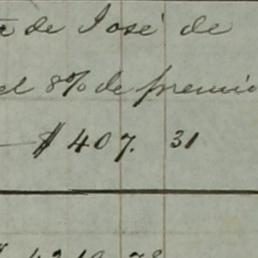 de José de
el 8% de premio
$ 407. 31